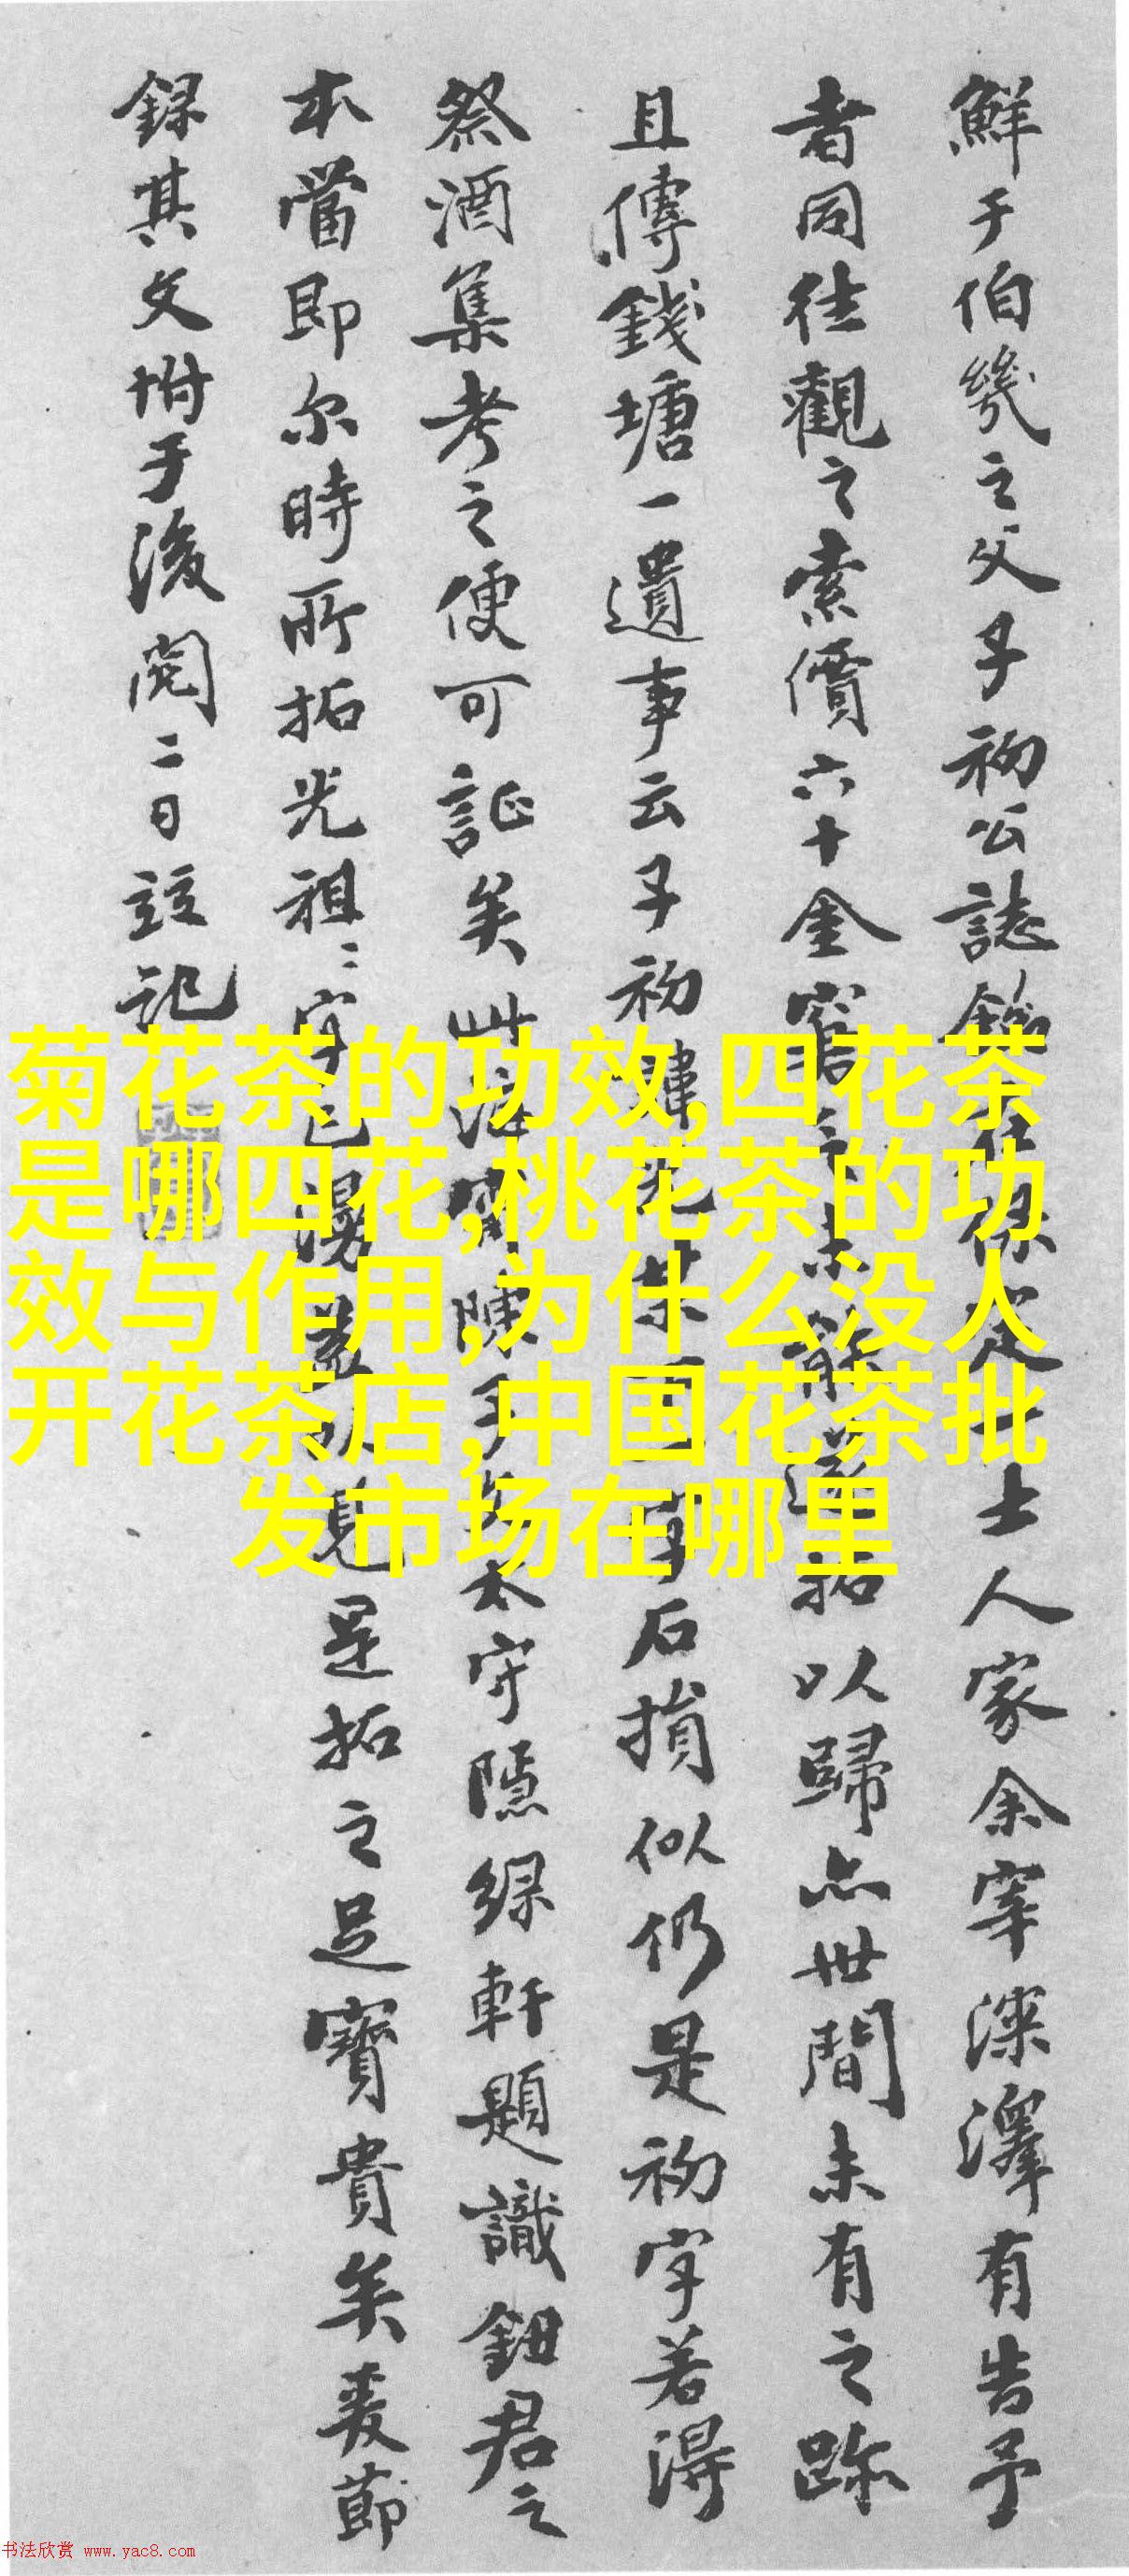 鮮于伯幾之父子初公誌銘保定士人家余宰深澤有告予
者同往觀之索價六十金窘未能遂拓以歸亦世間未有之跡
且傳錢塘一遺事云子初諱光石損似仍是初字若得
祭酒集考之便可証矣此海寧陳子太守隱綠軒題識鈕君之
本當即尔時所拓光祖二字已漫見是拓之足寶貴矣爰節
錄其文坿于後閱二日記
菊花茶的功效,四花茶
是哪四花,桃花茶的功
效与作用,为什么没人
开花茶店,中国花茶批
发市场在哪里
书法欣赏 www.yac8.com